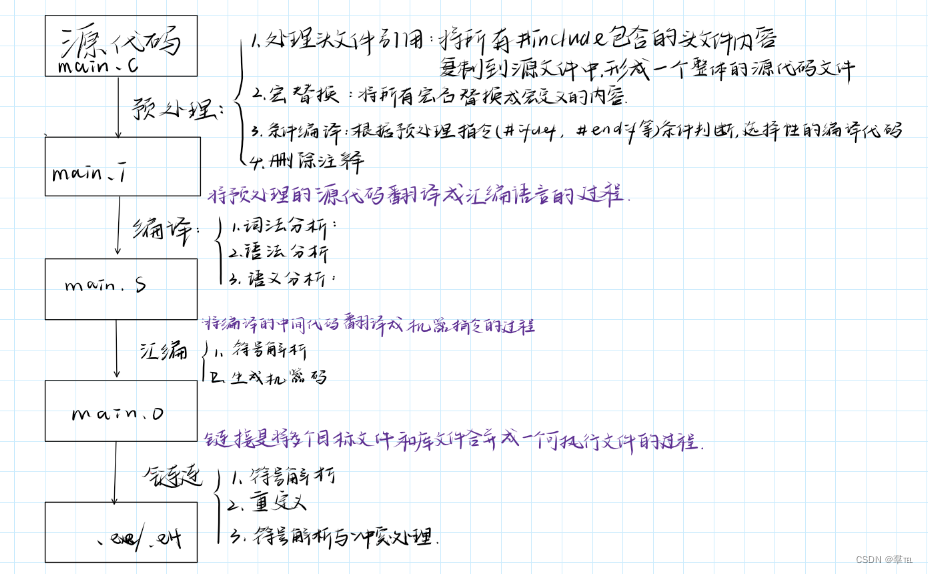 源代码
main.c
预处理:
1.处理头文件引用:将所有#include包含的头文件内容
复制到源文件中,形成一个整体的源代码文件
2.宏替换:将所有宏名替换成宏定义的内容.
3.条件编译:根据预处理指令(#ifdef, #endif等)条件判断,选择性的编译代码
4.删除注释
main.i
将预处理的源代码翻译成汇编语言的过程.
编译:
1.词法分析:
2.语法分析
3.语义分析:
main.s
将编译的中间代码翻译成机器指令的过程
汇编
1.符号解析
2.生成机器码
main.o
链接是将多个目标文件和库文件合并成一个可执行文件的过程.
1.符号解析
2.重定义
3.符号解析与冲突处理.
CSDN @羣℡